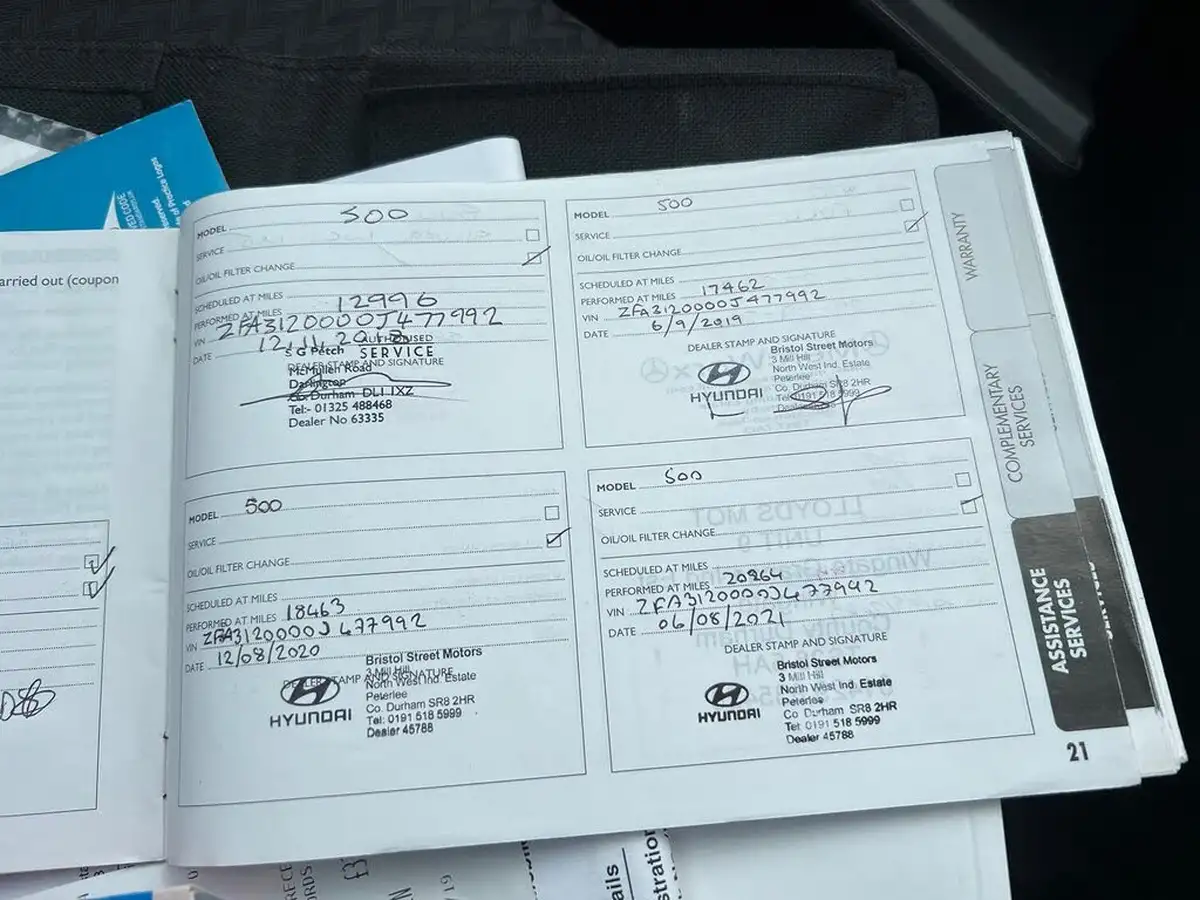 arried out (coupon
MODEL 500
SERVICE
OIL/OIL FILTER CHANGE
SCHEDULED AT MILES
PERFORMED AT MILES 12996
VIN ZFA3120000J477992
DATE 12.11.2018
AUTHORISED
S G Petch SERVICE
DEALER STAMP AND SIGNATURE
McMullen Road
Darlington
Co. Durham DL1 1XZ
Tel:- 01325 488468
Dealer No 63335
MODEL 500
SERVICE
OIL/OIL FILTER CHANGE
SCHEDULED AT MILES
PERFORMED AT MILES 17462
VIN ZFA3120000J477992
DATE 6/9/2019
DEALER STAMP AND SIGNATURE
HYUNDAI
Bristol Street Motors
3 Mill Hill
North West Ind. Estate
Peterlee
Co. Durham SR8 2HR
Tel: 0191 518 5999
MODEL 500
SERVICE
OIL/OIL FILTER CHANGE
SCHEDULED AT MILES
PERFORMED AT MILES 18463
VIN ZFA3120000J477992
DATE 12/08/2020
DEALER STAMP AND SIGNATURE
HYUNDAI
Bristol Street Motors
3 Mill Hill
North West Ind. Estate
Peterlee
Co. Durham SR8 2HR
Tel: 0191 518 5999
Dealer 45788
MODEL 500
SERVICE
OIL/OIL FILTER CHANGE
SCHEDULED AT MILES
PERFORMED AT MILES 20864
VIN ZFA3120000J477992
DATE 06/08/2021
DEALER STAMP AND SIGNATURE
HYUNDAI
Bristol Street Motors
3 Mill Hill
North West Ind. Estate
Peterlee
Co. Durham SR8 2HR
Tel: 0191 518 5999
Dealer 45788
WARRANTY
COMPLEMENTARY
SERVICES
ASSISTANCE
SERVICES
21